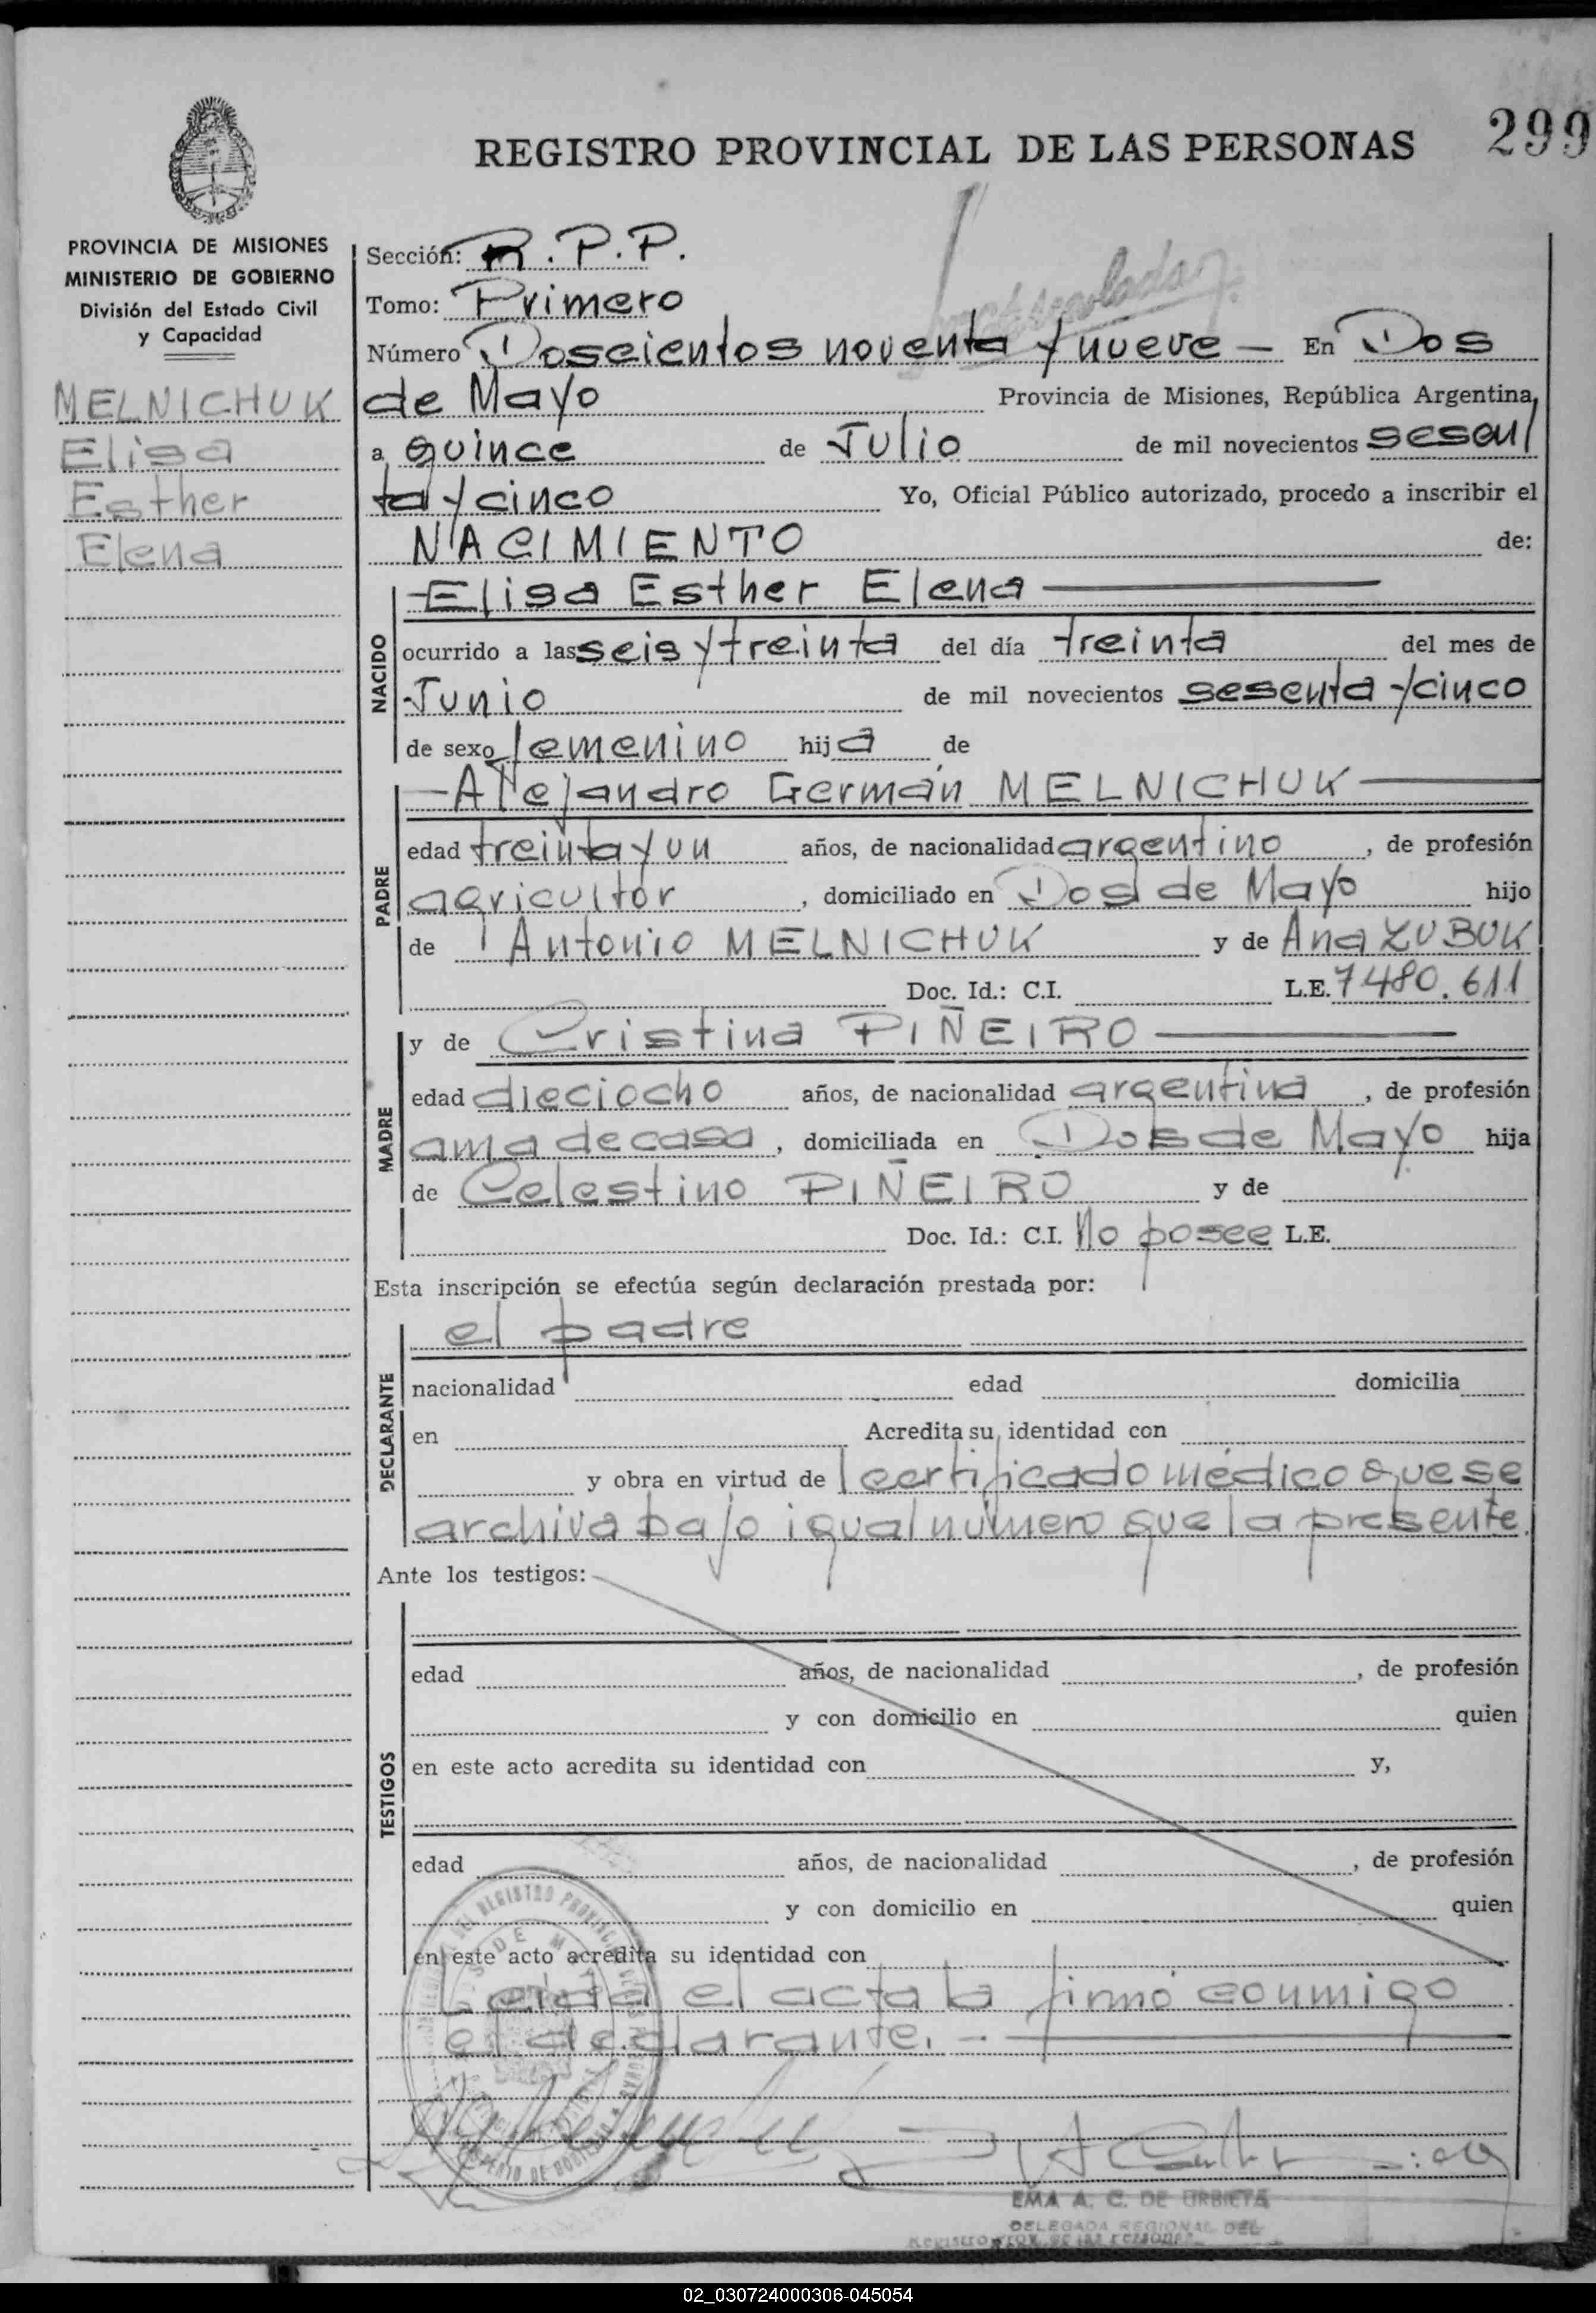 REGISTRO PROVINCIAL DE LAS PERSONAS 299
PROVINCIA DE MISIONES
MINISTERIO DE GOBIERNO
División del Estado Civil
y Capacidad
MELNICHUK
Elisa
Esther
Elena
Sección: R.P.P.
Tomo: Primero
Número Doscientos noventa y nueve — En Dos
de Mayo Provincia de Misiones, República Argentina,
a quince de Julio de mil novecientos sesen/
ta y cinco Yo, Oficial Público autorizado, procedo a inscribir el
NACIMIENTO de:
NACIDO
Elisa Esther Elena
ocurrido a las seis y treinta del día treinta del mes de
Junio de mil novecientos sesenta y cinco
de sexo femenino hija de
PADRE
Alejandro Germán MELNICHUK
edad treinta y un años, de nacionalidad argentino, de profesión
agricultor, domiciliado en Dos de Mayo hijo
de Antonio MELNICHUK y de Ana ZUBUK
Doc. Id.: C.I. L.E. 7480.611
MADRE
y de Cristina PIÑEIRO
edad dieciocho años, de nacionalidad argentina, de profesión
ama de casa, domiciliada en Dos de Mayo hija
de Celestino PIÑEIRO y de
Doc. Id.: C.I. No posee L.E.
Esta inscripción se efectúa según declaración prestada por:
DECLARANTE
el padre
nacionalidad edad domicilia
en Acredita su identidad con
y obra en virtud de certificado médico que se
archiva bajo igual número que la presente.
Ante los testigos:
TESTIGOS
edad años, de nacionalidad , de profesión
y con domicilio en quien
en este acto acredita su identidad con y,
edad años, de nacionalidad , de profesión
y con domicilio en quien
en este acto acredita su identidad con
Leída el acta la firmó conmigo
el declarante. -
EMA A. C. DE URBIETA
DELEGADA REGIONAL DEL
Registro Prov. de las Personas
02_030724000306-045054